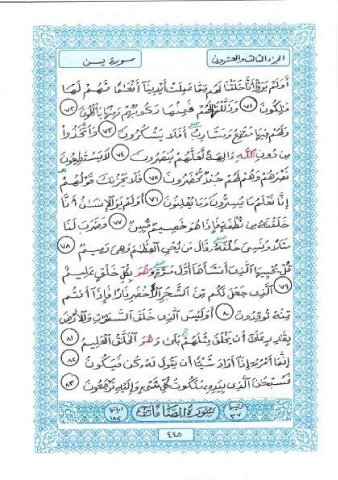 الجزء الثالث والعشرون
سورة يسٓ
أَوَلَمْ يَرَوْا أَنَّا خَلَقْنَا لَهُم مِّمَّا عَمِلَتْ أَيْدِينَا أَنْعَٰمًا فَهُمْ لَهَا
مَٰلِكُونَ ٧١ وَذَلَّلْنَٰهَا لَهُمْ فَمِنْهَا رَكُوبُهُمْ وَمِنْهَا يَأْكُلُونَ ٧٢
وَلَهُمْ فِيهَا مَنَٰفِعُ وَمَشَارِبُ أَفَلَا يَشْكُرُونَ ٧٣ وَٱتَّخَذُوا
مِن دُونِ ٱللَّهِ ءَالِهَةً لَّعَلَّهُمْ يُنصَرُونَ ٧٤ لَا يَسْتَطِيعُونَ
نَصْرَهُمْ وَهُمْ لَهُمْ جُندٌ مُّحْضَرُونَ ٧٥ فَلَا يَحْزُنكَ قَوْلُهُمْ
إِنَّا نَعْلَمُ مَا يُسِرُّونَ وَمَا يُعْلِنُونَ ٧٦ أَوَلَمْ يَرَ ٱلْإِنسَٰنُ أَنَّا
خَلَقْنَٰهُ مِن نُّطْفَةٍ فَإِذَا هُوَ خَصِيمٌ مُّبِينٌ ٧٧ وَضَرَبَ لَنَا
مَثَلًا وَنَسِيَ خَلْقَهُۥ قَالَ مَن يُحْيِ ٱلْعِظَٰمَ وَهِيَ رَمِيمٌ ٧٨
قُلْ يُحْيِيهَا ٱلَّذِي أَنشَأَهَا أَوَّلَ مَرَّةٍ وَهُوَ بِكُلِّ خَلْقٍ عَلِيمٌ
٧٩ ٱلَّذِي جَعَلَ لَكُم مِّنَ ٱلشَّجَرِ ٱلْأَخْضَرِ نَارًا فَإِذَا أَنتُم
مِّنْهُ تُوقِدُونَ ٨٠ أَوَلَيْسَ ٱلَّذِي خَلَقَ ٱلسَّمَٰوَٰتِ وَٱلْأَرْضَ
بِقَٰدِرٍ عَلَىٰ أَن يَخْلُقَ مِثْلَهُم بَلَىٰ وَهُوَ ٱلْخَلَّٰقُ ٱلْعَلِيمُ ٨١
إِنَّمَا أَمْرُهُۥ إِذَا أَرَادَ شَيْـًٔا أَن يَقُولَ لَهُۥ كُن فَيَكُونُ ٨٢
فَسُبْحَٰنَ ٱلَّذِي بِيَدِهِۦ مَلَكُوتُ كُلِّ شَيْءٍ وَإِلَيْهِ تُرْجَعُونَ ٨٣
سورة الصافات
٤٤٥